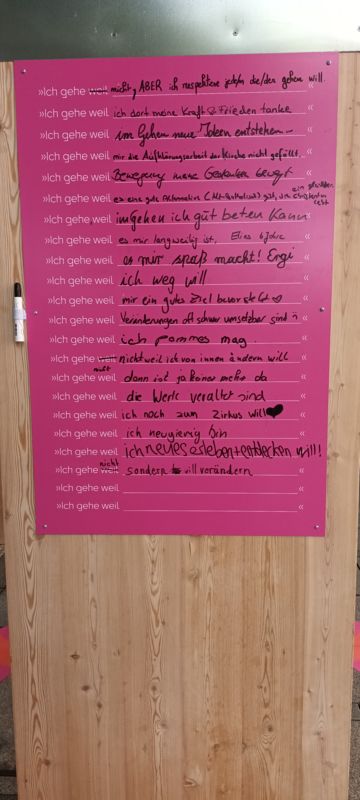 »Ich gehe weil nicht, ABER ich respektiere jede/n die/der gehen will. «
»Ich gehe weil ich dort meine Kraft & Frieden tanke «
»Ich gehe weil im Gehen neue Ideen entstehen «
»Ich gehe weil mir die Aufklärungsarbeit der Kirche nicht gefällt. «
»Ich gehe weil Bewegung meine Gedanken bewegt «
»Ich gehe weil es eine gute Alternative (Alt-Katholisch) gibt, die ein Christentum lebt «
»Ich gehe weil im gehen ich gut beten kann «
»Ich gehe weil es mir langweilig ist, Elias 6 Jahre «
»Ich gehe weil es mir spaß macht! Ergi «
»Ich gehe weil ich weg will «
»Ich gehe weil mir ein gutes Ziel bevor steht «
»Ich gehe weil Veränderungen oft schwer umsetzbar sind «
»Ich gehe weil ich pommes mag. «
»Ich gehe weil nicht weil ich von innen ändern will «
»Ich gehe nicht weil dann ist ja keiner mehr da «
»Ich gehe weil die Werte veraltet sind «
»Ich gehe weil ich noch zum Zirkus will ❤ «
»Ich gehe weil ich neugierig bin «
»Ich gehe weil ich neues erleben + entdecken will! «
»Ich gehe nicht weil sondern will verändern «
»Ich gehe weil «
»Ich gehe weil «